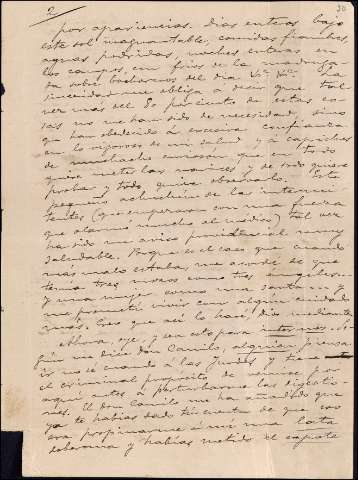 2
30
por apariencias. Dias enteros bajo
este sol inaguantable, comidas fiambres,
aguas podridas, noches enteras en
los campos, con frios de la madruga-
da sobre bochornos del dia
sinceridad me obliga a decir que tal
vez más del 80 por ciento de estas co-
sas no me han sido de necesidad, sino
que han obedecido á excesiva confianza
en lo vigoroso de mi salud y á caprichos
de muchacho curioso que en todo
quiere meter las narices y de todo quiere
probar y todo quiere observarlo. Este
pequeño achuchón de las intermi-
tentes (que empezaron con una fuerza
que alarmó mucho al médico) tal vez
ha sido un aviso providencial muy
saludable. Porque es el caso que cuando
más malo estaba, me acordé de que
tenia tres mozos como tres ángeles...
y una mujer como una santa... y
me prometí vivir con algún cuidado
más. Creo que así lo haré, Dios mediante.
Ahora, oye, y sea esto para inter nos. Se-
gún me dice don Camilo, alguien piensa
ir no sé cuando á las Jurdes y tiene
el criminal proposito de venirse por
aquí antes á perturbarme las digestio-
nes. El don Camilo me ha añadido que
ya te habías dado tú cuenta de que eso
era propinarme á mí una lata
soberana y habías metido el capote